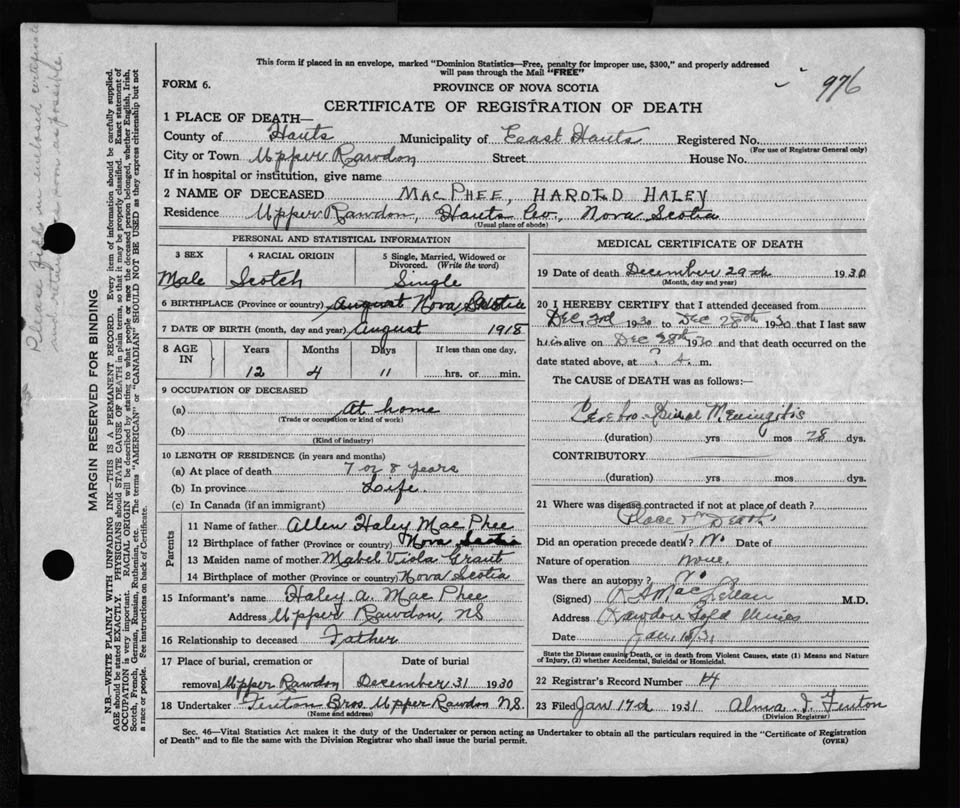 This form if placed in an envelope, marked "Dominion Statistics—Free, penalty for improper use, $300," and properly addressed
will pass through the Mail "FREE"
FORM 6.
PROVINCE OF NOVA SCOTIA
976
CERTIFICATE OF REGISTRATION OF DEATH
1 PLACE OF DEATH—
County of Hants Municipality of East Hants Registered No.
(For use of Registrar General only)
City or Town Upper Rawdon Street House No.
If in hospital or institution, give name
2 NAME OF DECEASED MAC PHEE, HAROLD HALEY
Residence Upper Rawdon, Hants Co., Nova Scotia
(Usual place of abode)
PERSONAL AND STATISTICAL INFORMATION
3 SEX 4 RACIAL ORIGIN 5 Single, Married, Widowed or Divorced. (Write the word)
Male Scotch Single
6 BIRTHPLACE (Province or country) August Nova Scotia
7 DATE OF BIRTH (month, day and year) August 1918
8 AGE IN Years Months Days If less than one day,
12 4 11 hrs. or min.
9 OCCUPATION OF DECEASED
(a) At home
(Trade or occupation or kind of work)
(b)
(Kind of industry)
10 LENGTH OF RESIDENCE (in years and months)
(a) At place of death 7 or 8 years
(b) In province Life.
(c) In Canada (if an immigrant)
Parents
11 Name of father Allen Haley Mac Phee
12 Birthplace of father (Province or country) Nova Scotia
13 Maiden name of mother Mabel Viola Grant
14 Birthplace of mother (Province or country) Nova Scotia
15 Informant's name Haley A. Mac Phee
Address Upper Rawdon, NS
16 Relationship to deceased Father
17 Place of burial, cremation or Date of burial
removal Upper Rawdon December 31 1930
18 Undertaker Fenton Bros. Upper Rawdon N.S.
(Name and address)
MEDICAL CERTIFICATE OF DEATH
19 Date of death December 29th 1930
(Month, day and year)
20 I HEREBY CERTIFY that I attended deceased from
Dec. 3rd 1930 to Dec 28th 1930 that I last saw
him alive on Dec 28th 1930 and that death occurred on the
date stated above, at ? A. m.
The CAUSE of DEATH was as follows:—
Cerebro-Spinal Meningitis
(duration) yrs mos 28 dys.
CONTRIBUTORY
(duration) yrs mos dys.
21 Where was disease contracted if not at place of death?
Place of Death
Did an operation precede death? No Date of
Nature of operation None.
Was there an autopsy? No
(Signed) R A MacLellan M.D.
Address Rawdon Gold Mines
Date Jan.
State the Disease causing Death, or in death from Violent Causes, state (1) Means and Nature
of Injury, (2) whether Accidental, Suicidal or Homicidal.
22 Registrar's Record Number 14
23 Filed Jan 17th 1931 Alma I. Fenton
(Division Registrar)
Sec. 46—Vital Statistics Act makes it the duty of the Undertaker or person acting as Undertaker to obtain all the particulars required in the "Certificate of Registration
of Death" and to file the same with the Division Registrar who shall issue the burial permit.
(OVER)
MARGIN RESERVED FOR BINDING
N.B.—WRITE PLAINLY WITH UNFADING INK—THIS IS A PERMANENT RECORD. Every item of information should be carefully supplied.
AGE should be stated EXACTLY. PHYSICIANS should STATE CAUSE OF DEATH in plain terms, so that it may be properly classified. Exact statement of
OCCUPATION is very important. RACIAL ORIGIN will be described by stating to what people or race the deceased person belonged, whether English, Irish,
Scotch, French, German, Russian, Ruthenian, etc. The terms "AMERICAN" or "CANADIAN" SHOULD NOT BE USED as they express citizenship but not
a race or people. See instructions on back of Certificate.
Please fill in enclosed certificate
and return as soon as possible.